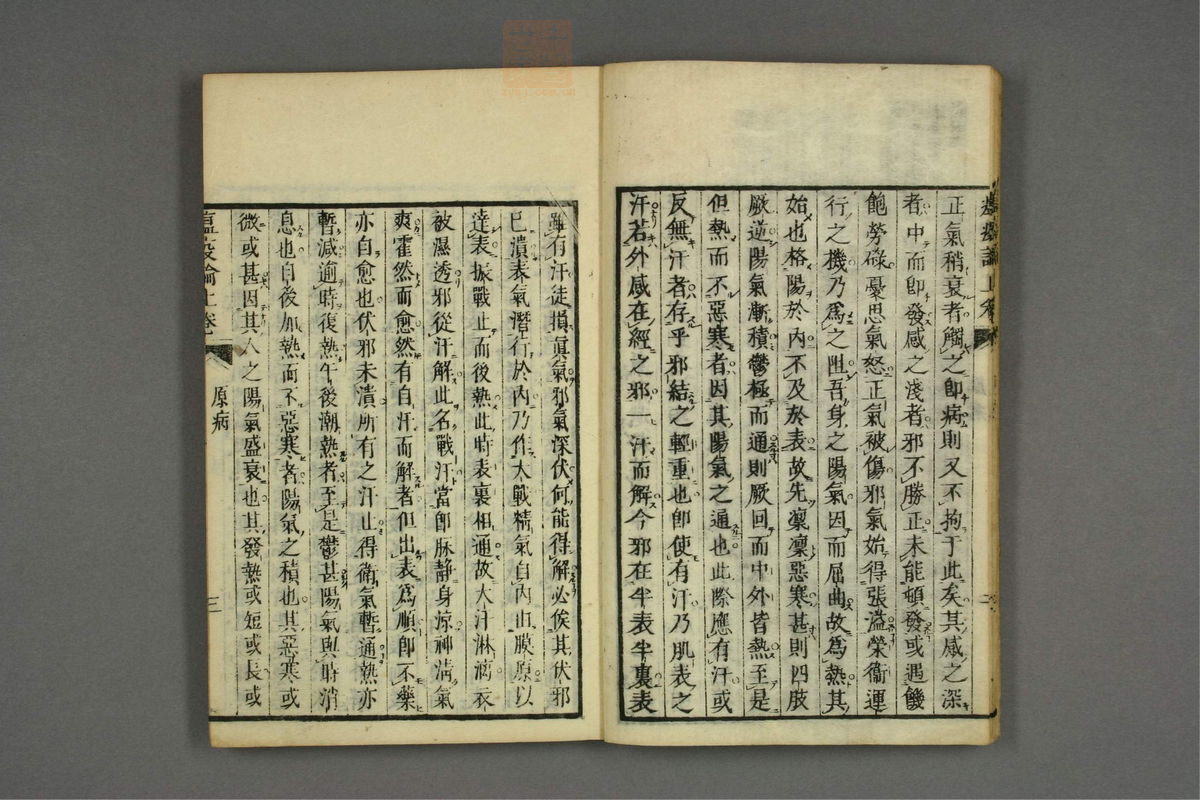 正氣稍衰者觸之即病則又不拘于此矣其感之深
者中而即發感之淺者邪不勝正未能頓發或遇饑
飽勞碌憂思氣怒正氣被傷邪氣始得張溢榮衞運
行之機乃爲之阻吾身之陽氣因而屈曲故爲熱其
始也格陽於内不及於表故先凛凛惡寒甚則四肢
厥逆陽氣漸積鬱極而通則厥回而中外皆熱至是
但熱而不惡寒者因其陽氣之通也此際應有汗或
反無汗者存乎邪結之輕重也即使有汗乃肌表之
汗若外感在經之邪一汗而解今邪在半表半裏表
雖有汗徒損眞氣邪氣深伏何能得解必俟其伏邪
已潰表氣潛行於内乃作大戰精氣自内由膜原以
達表振戰止而後熱此時表裏相通故大汗淋漓衣
被濕透邪從汗解此名戰汗當即脉静身凉神清氣
爽霍然而愈然有自汗而解者但出表爲順即不藥
亦自愈也伏邪未潰所有之汗止得衛氣暫通熱亦
暫減逾時復熱午後潮熱者至是鬱甚陽氣與時消
息也自後加熱而不惡寒者陽氣之積也其惡寒或
微或甚因其人之陽氣盛衰也其發熱或短或長或
瘟疫論上卷
原病
三